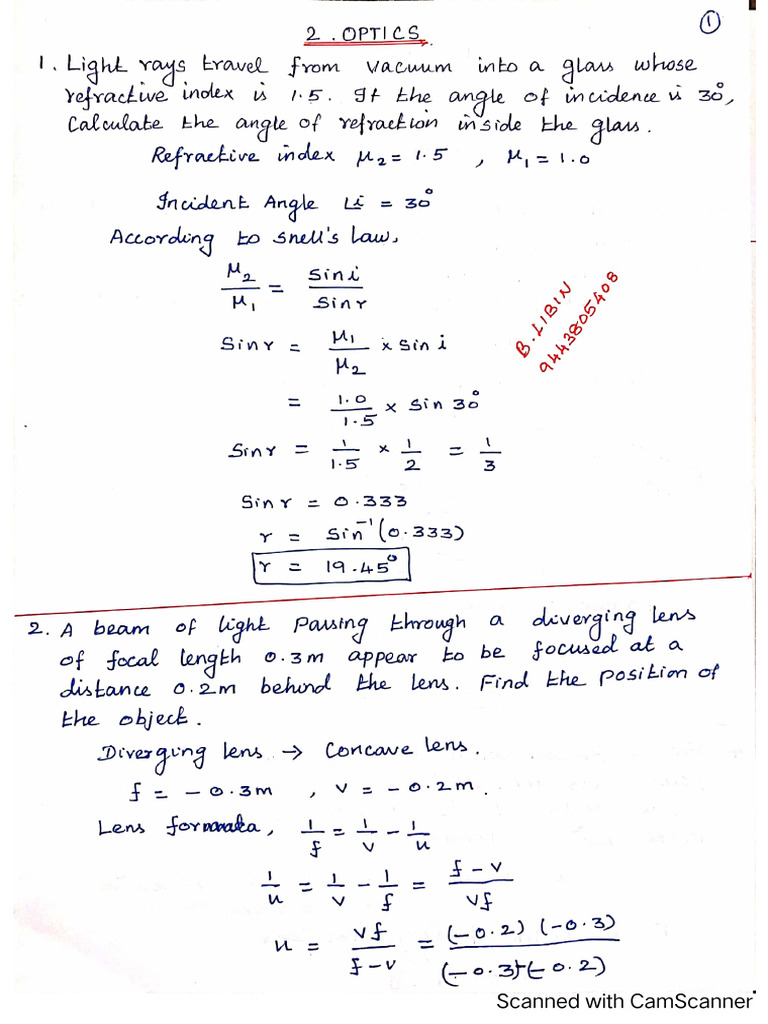 2. OPTICS
1
1. Light rays travel from vacuum into a glass whose
refractive index is 1.5. If the angle of incidence is 30°,
Calculate the angle of refraction inside the glass.
Refractive index μ₂ = 1.5 , μ₁ = 1.0
Incident Angle ∠i = 30°
According to snell's law,
μ₂/μ₁ = sin i/sin r
Sin r = μ₁/μ₂ × sin i
= 1.0/1.5 × sin 30°
Sin r = 1/1.5 × 1/2 = 1/3
Sin r = 0.333
r = sin⁻¹(0.333)
r = 19.45°
B. LIBIN
9443805408
2. A beam of light passing through a diverging lens
of focal length 0.3m appear to be focused at a
distance 0.2m behind the lens. Find the position of
the object.
Diverging lens → Concave lens.
f = -0.3m , v = -0.2m.
Lens formula, 1/f = 1/v - 1/u
1/u = 1/v - 1/f = f-v/vf
u = vf/f-v = (-0.2) (-0.3)/(-0.3)-(-0.2)
Scanned with CamScanner